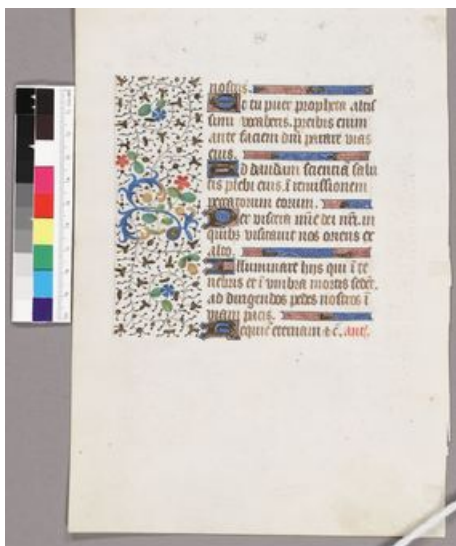 nostris.
Et tu puer propheta altis
simi vocaberis. preibis enim
ante faciem dni parare vias
eius.
Ad dandum scienciā salu
tis plebi eius. ī remissionem
peccatorum eorum.
Per viscera mīe dei nrī. in
quibȝ visitavit nos oriens ex
alto.
Illuminare hijs qui ī te
nebris et ī umbra mortis sedēt.
ad dirigendos pedes nostros ī
viam pacis.
Requiē eternam ⁊ c̄. ant̄.